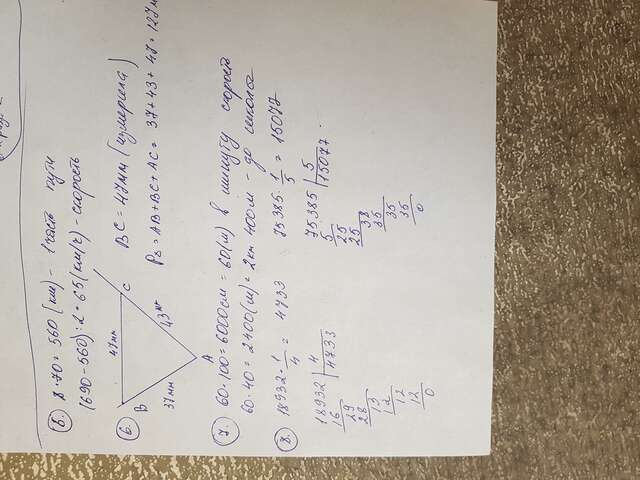 5. 8·70=560 (км) - 1 часть пути
(690-560):2=65 (км/ч) - скорость
6. BC=47мм (измерила)
P△=AB+BC+AC=37+43+47=127м
47мм
B
C
37мм
43мм
A
7. 60·100=6000см=60(м) в минуту скорость
60·40=2400(м)=2км 400м - до школа
8. 18932·1/4=4733
75385·1/5=15077
18932|4
16 4733
29
28
13
12
12
12
0
75385|5
5 15077.
25
25
38
35
35
35
0